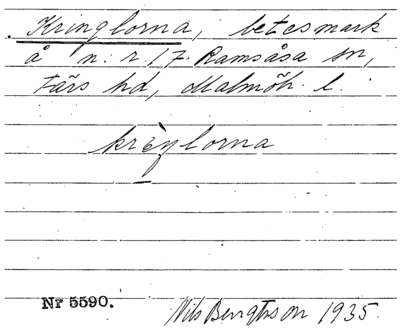 Kringlorna, betesmark
å n:r 17 Ramsåsa sn,
Färs hd, Malmöh. l.
krèŋlorna
Nr 5590.
Nils Bengtsson 1935.